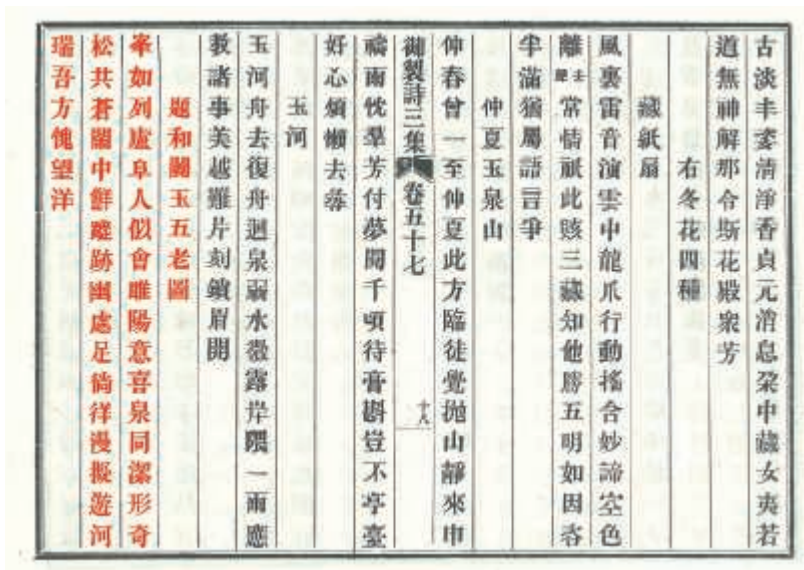 古淡丰姿清淨香貞元消息蕊中藏女夷若
道無神解那令斯花殿衆芳
右冬花四種
藏紙扇
風裏雷音演雲中龍爪行動搖含妙諦空色
離去聲常情祇此賅三藏知他勝五明如因杏
半滿猶屬語言爭
仲夏玉泉山
仲春曾一至仲夏此方臨徒覺拋山靜來申
御製詩三集 卷五十七 十八
禱雨忱羣芳付夢閒千頃待膏斟豈不亭臺
好心煩懶去尋
玉河
玉河舟去復舟迴泉弱水微露岸隈一雨應
教諸事美越難片刻皺眉開
題和闐玉五老圖
峯如列廬阜人似會睢陽意喜泉同潔形奇
松共蒼闐中鮮遯跡幽處足徜徉漫擬遊河
瑞吾方愧望洋